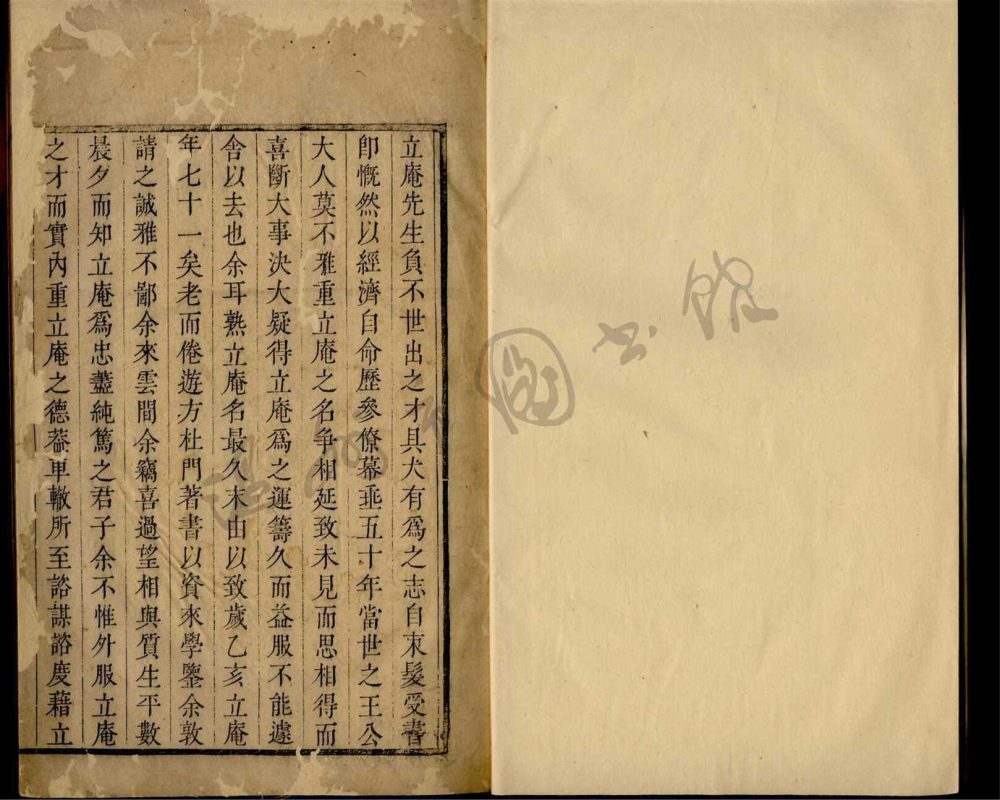 立庵先生負不世出之才具大有為之志自束髮受書
卽慨然以經濟自命歷參僚幕垂五十年當世之王公
大人莫不雅重立庵之名爭相延致未見而思相得而
喜斷大事決大疑得立庵爲之運籌久而益服不能遽
舍以去也余耳熟立庵名最久末由以致歲乙亥立庵
年七十一矣老而倦遊方杜門著書以資來學鑒余敦
請之誠雅不鄙余來雲間余竊喜過望相與質生平數
晨夕而知立庵爲忠藎純篤之君子余不惟外服立庵
之才而實內重立庵之德葢車轍所至諮謀諮度藉立
圖書館